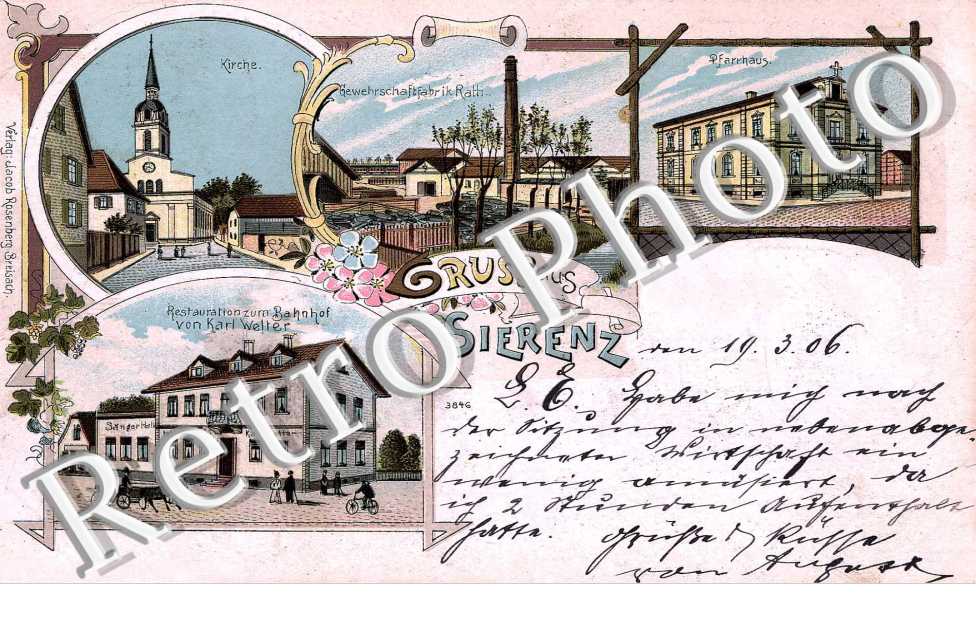 Kirche.
Gewehrschaftfabrik Rath.
Pfarrhaus.
Verlag: Jacob Rosenberg, Breisach.
GRUSS aus
SIERENZ
Restauration zum Bahnhof
von Karl Welter
Sänger Halle
3846
den 19.3.06.
L. E. Habe mich nach
der Sitzung in nebenabge-
zeichneten Wirtschaft ein
wenig amüsiert, da
ich 2 Stunden Aufenthalt
hatte. Grüße & Küsse
von August
Retro Photo